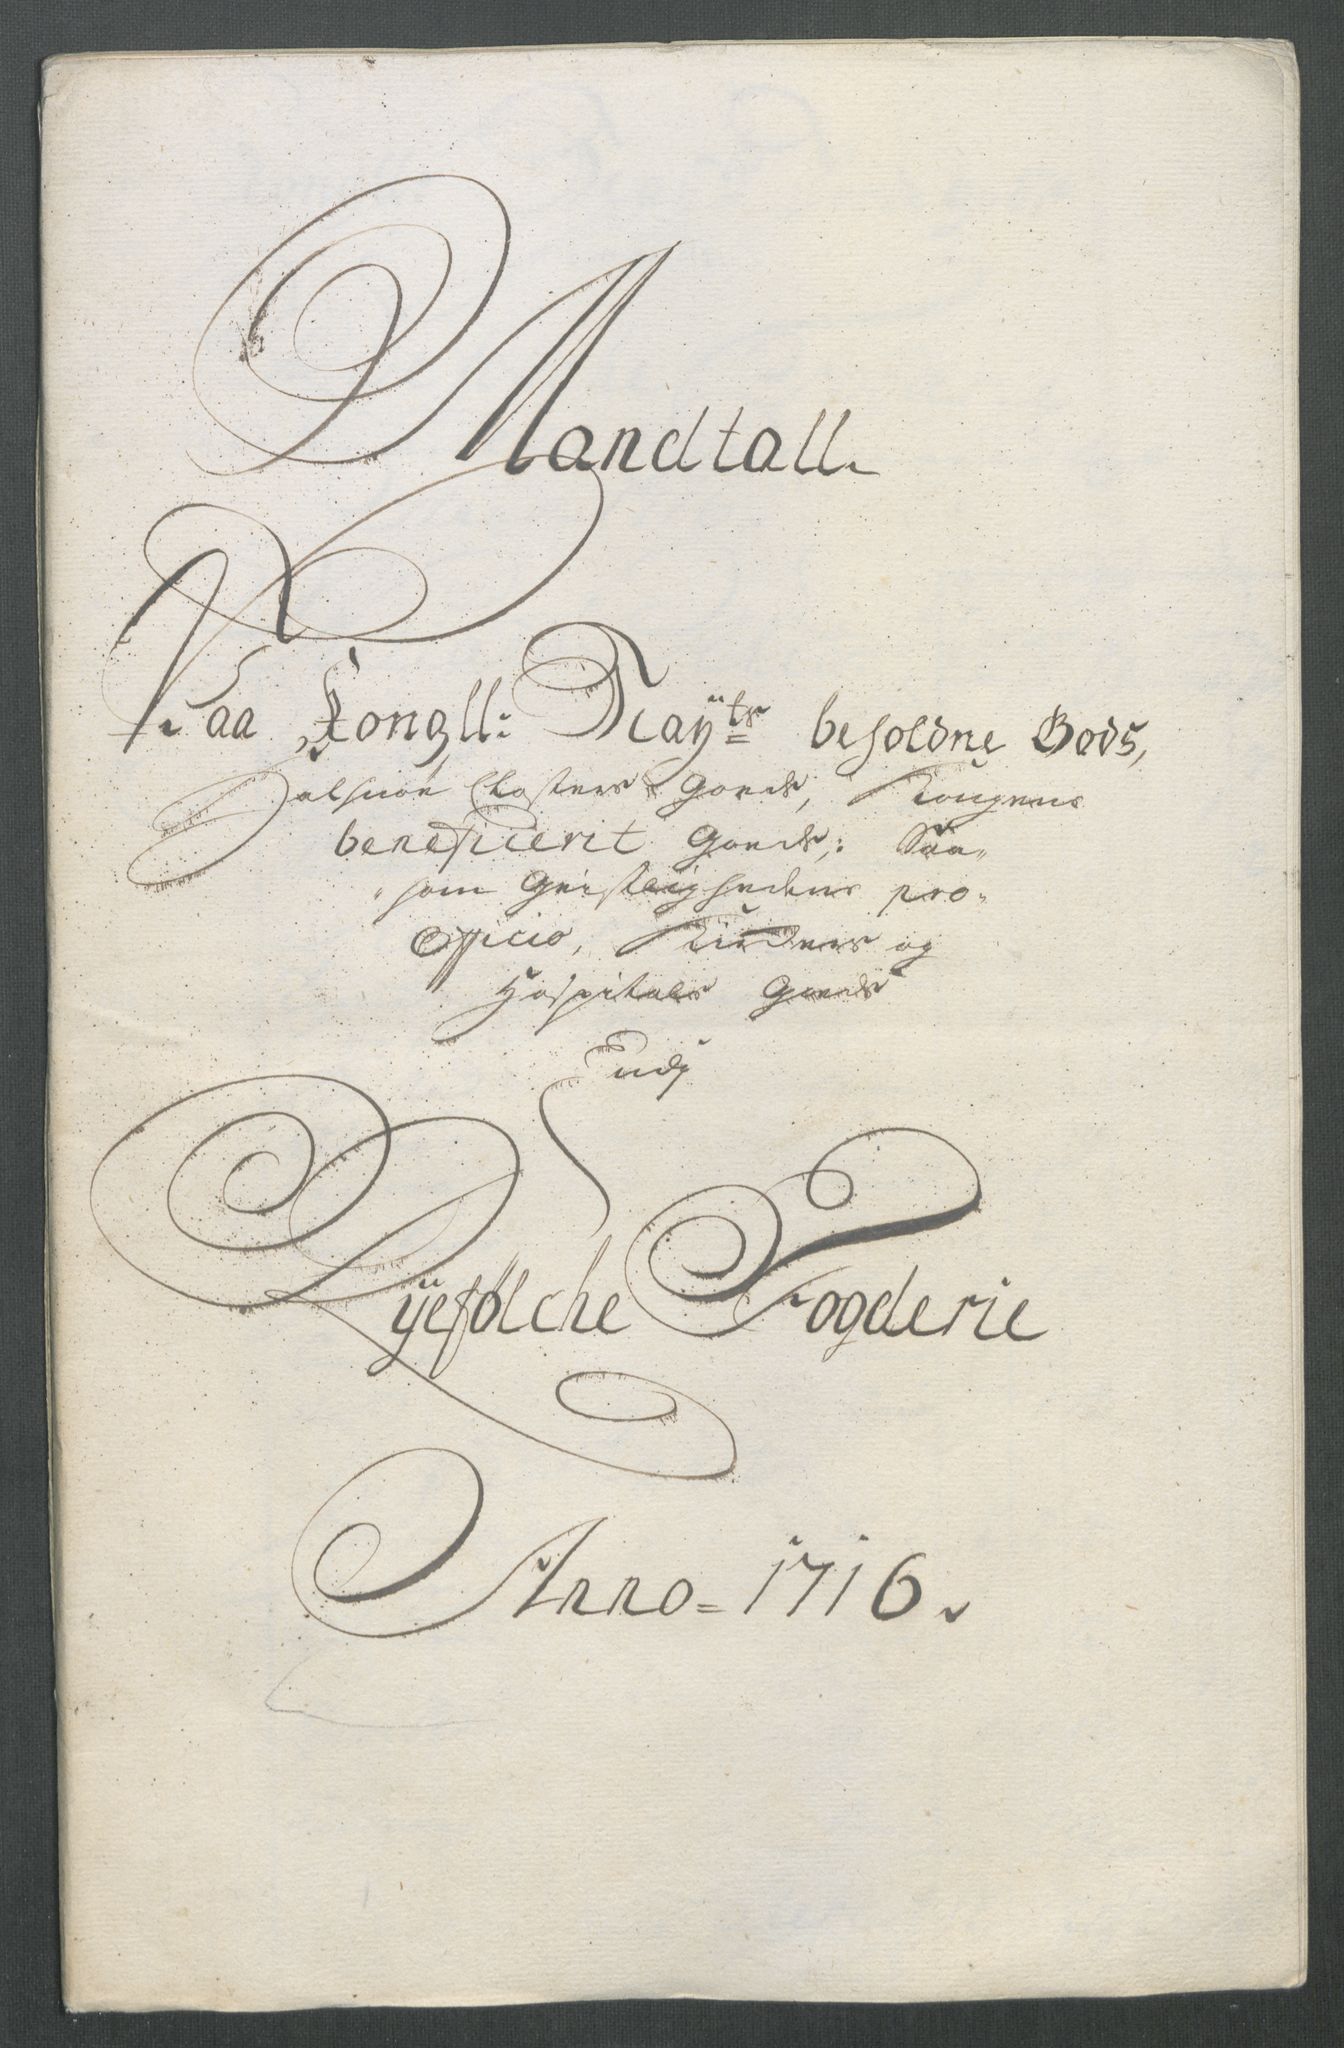 Mandtall
Paa Kongll: Mayts beholdne Gods,
Halsnöe Closters Goeds, Kongens
beneficerit Goeds, Saa-
som Geistlighedens pro
Officio, Kirchens og
Hospitals Goeds
Udj
Ryefölche Fogderie
Anno = 1716.